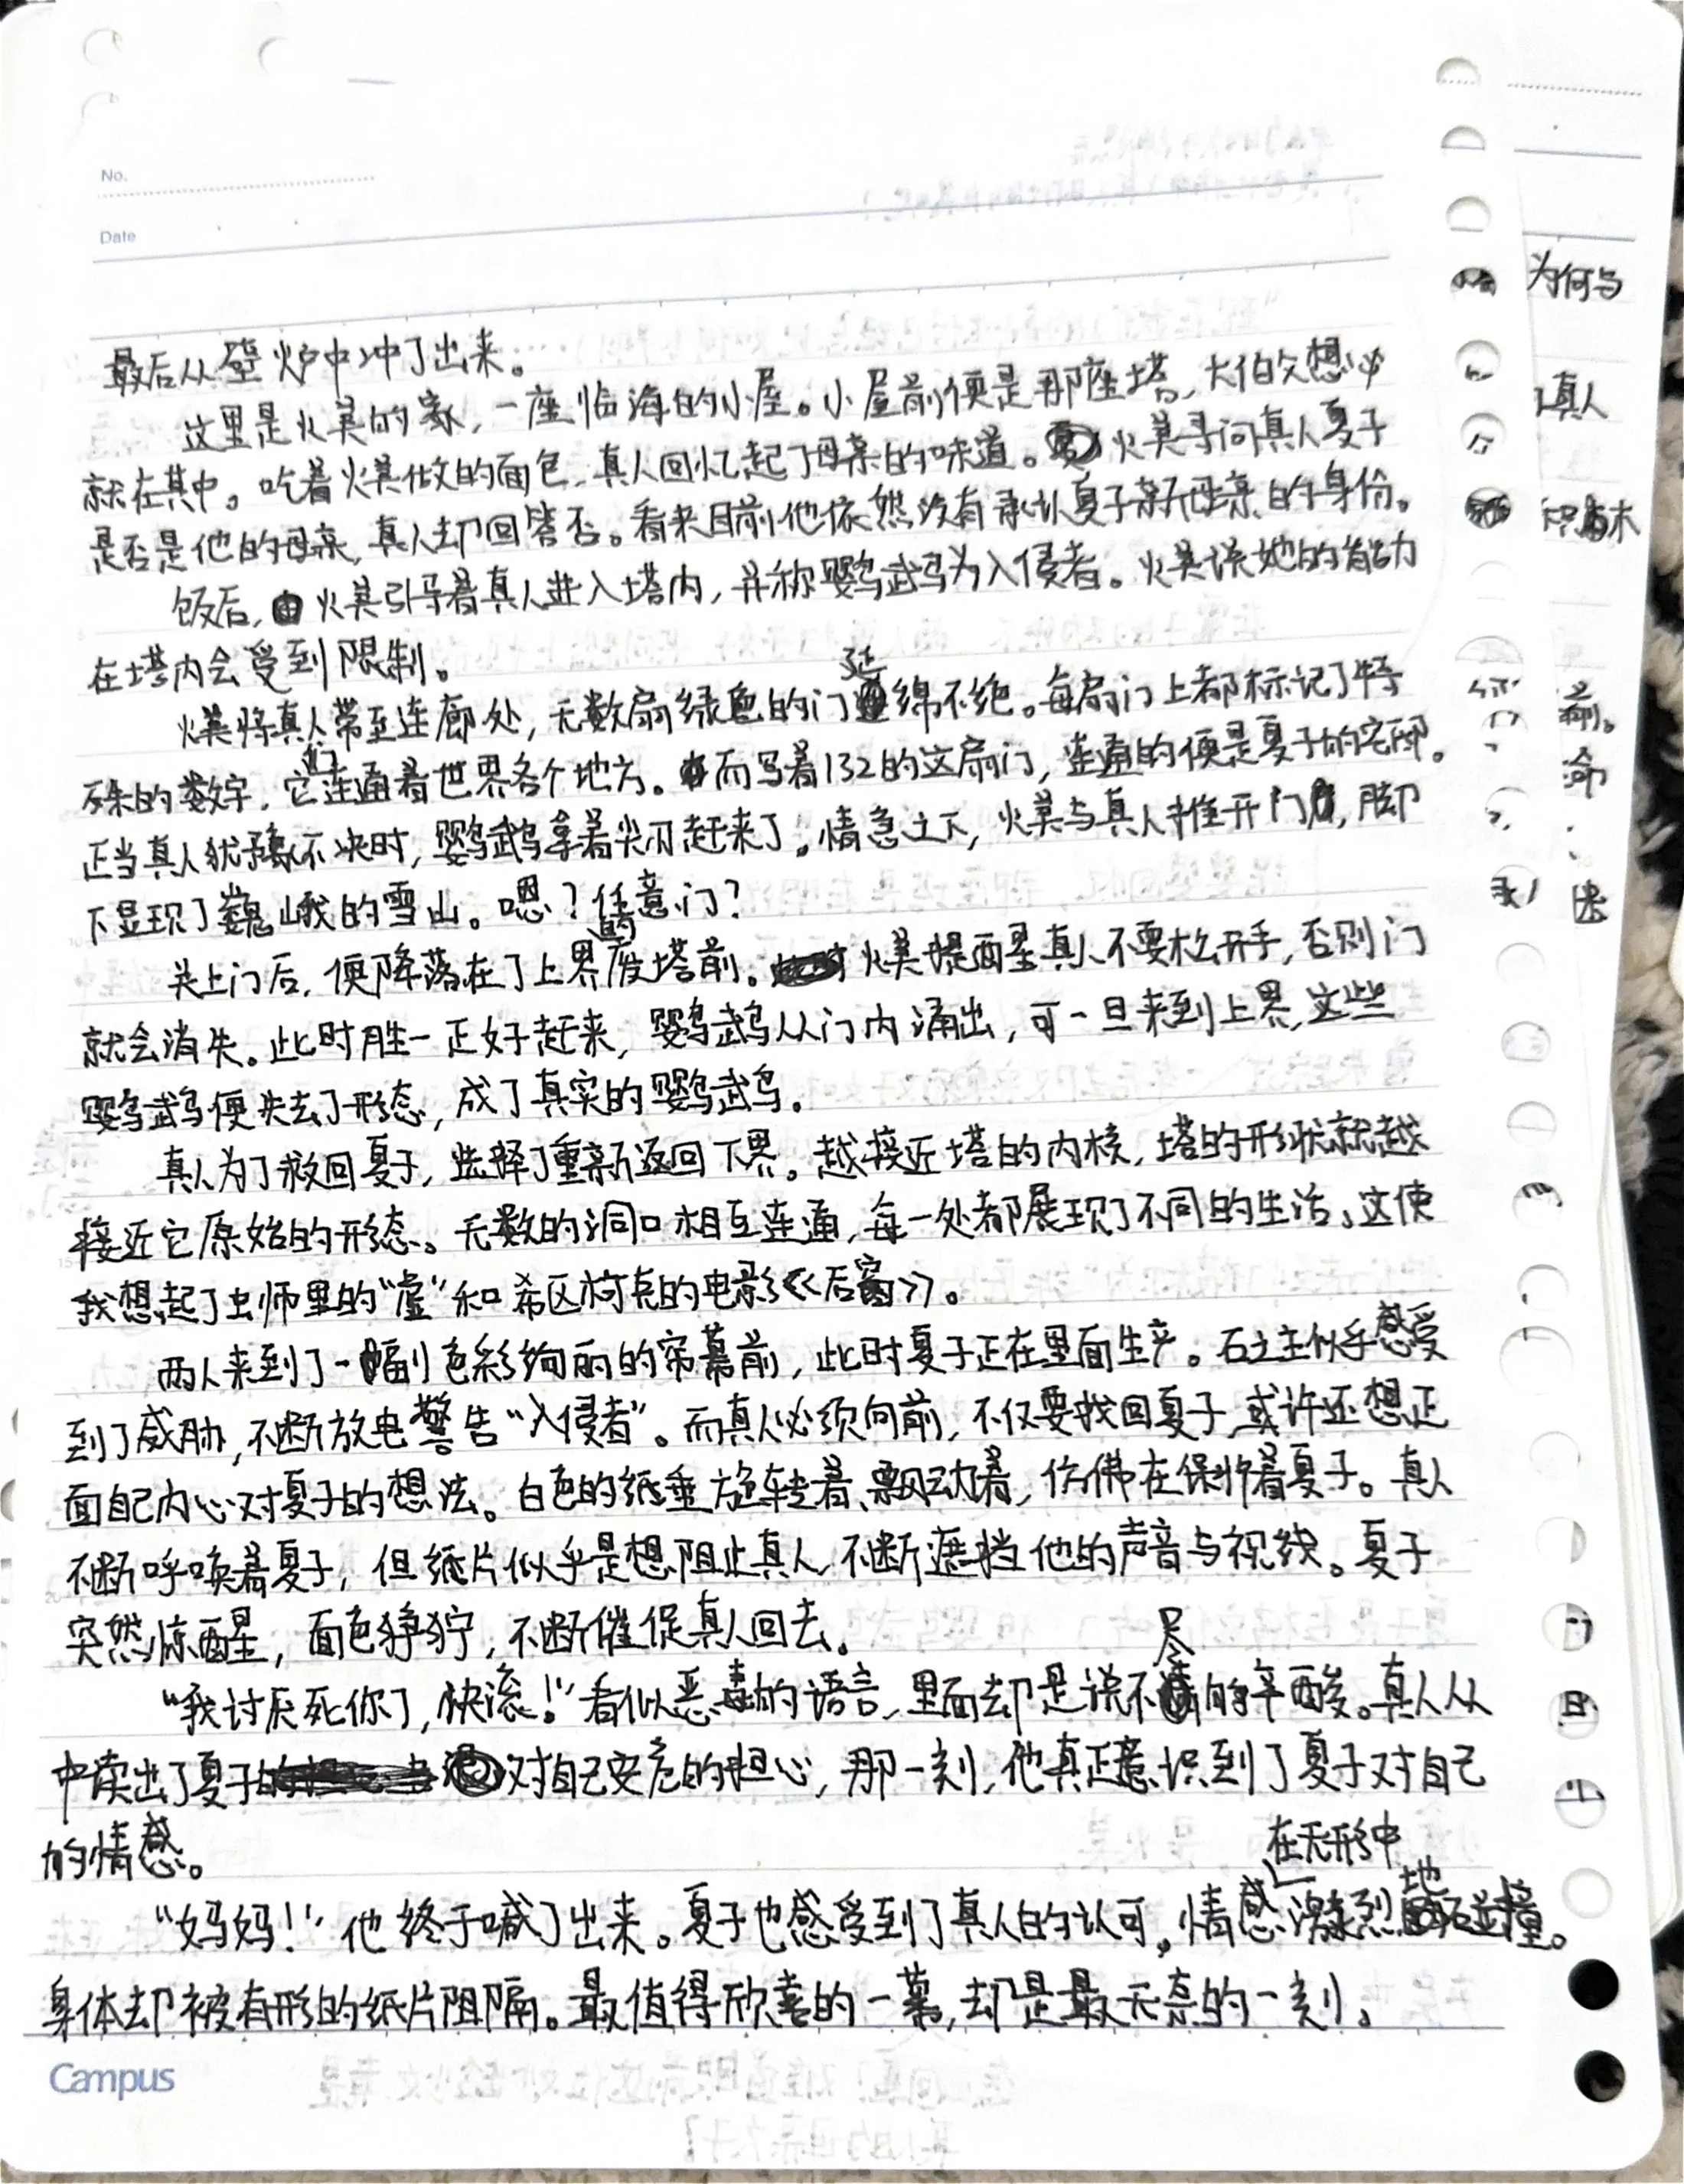 No.
Date
最后从壁炉中冲了出来。
这里是火美的家，一座临海的小屋。小屋前便是那座塔，大伯父想必
就在其中。吃着火美做的面包，真人回忆起了母亲的味道。火美寻问真人夏子
是否是他的母亲，真人却回答否。看来目前他依然没有承认夏子新母亲的身份。
饭后，火美引导着真人进入塔内，并称鹦鹉为入侵者。火美误她的能力
在塔内会受到限制。
火美将真人带至连廊处，无数扇绿色的门延绵不绝。每扇门上都标记了特
殊的数字，它们连通着世界各个地方。而写着132的这扇门，连通的便是夏子的宅邸。
正当真人犹豫不决时，鹦鹉拿着尖刃赶来了。情急之下，火美与真人推开门，脚
下显现了巍峨的雪山。嗯？任意门？
关上门后，便降落在了上界的废塔前。火美提醒真人不要松开手，否则门
就会消失。此时胜一正好赶来，鹦鹉从门内涌出，可一旦来到上界，这些
鹦鹉便失去了形态，成了真实的鹦鹉。
真人为了救回夏子，选择了重新返回下界。越接近塔的内核，塔的形状就越
接近它原始的形态。无数的洞口相互连通，每一处都展现了不同的生活，这使
我想起了虫师里的“虚”和希区柯克的电影《后窗》。
两人来到了一幅色彩绚丽的帘幕前，此时夏子正在里面生产。石之主似乎感受
到了威胁，不断放电警告“入侵者”。而真人必须向前，不仅要找回夏子，或许还想正
面自己内心对夏子的想法。白色的纸垂旋转着、飘动着，仿佛在保护着夏子。真人
不断呼唤着夏子，但纸片似乎是想阻止真人，不断遮挡他的声音与视线。夏子
突然惊醒，面色狰狞，不断催促真人回去。
“我讨厌死你了，快滚！”看似恶毒的语言，里面却是说不尽的辛酸。真人从
中读出了夏子对自己安危的担心，那一刻，他真正意识到了夏子对自己
的情感。
“妈妈！”他终于喊了出来。夏子也感受到了真人的认可，情感在无形中激烈地碰撞。
身体却被有形的纸片阻隔。最值得欣喜的一幕，却是最无奈的一刻。
Campus
为何与
真人
前。
命